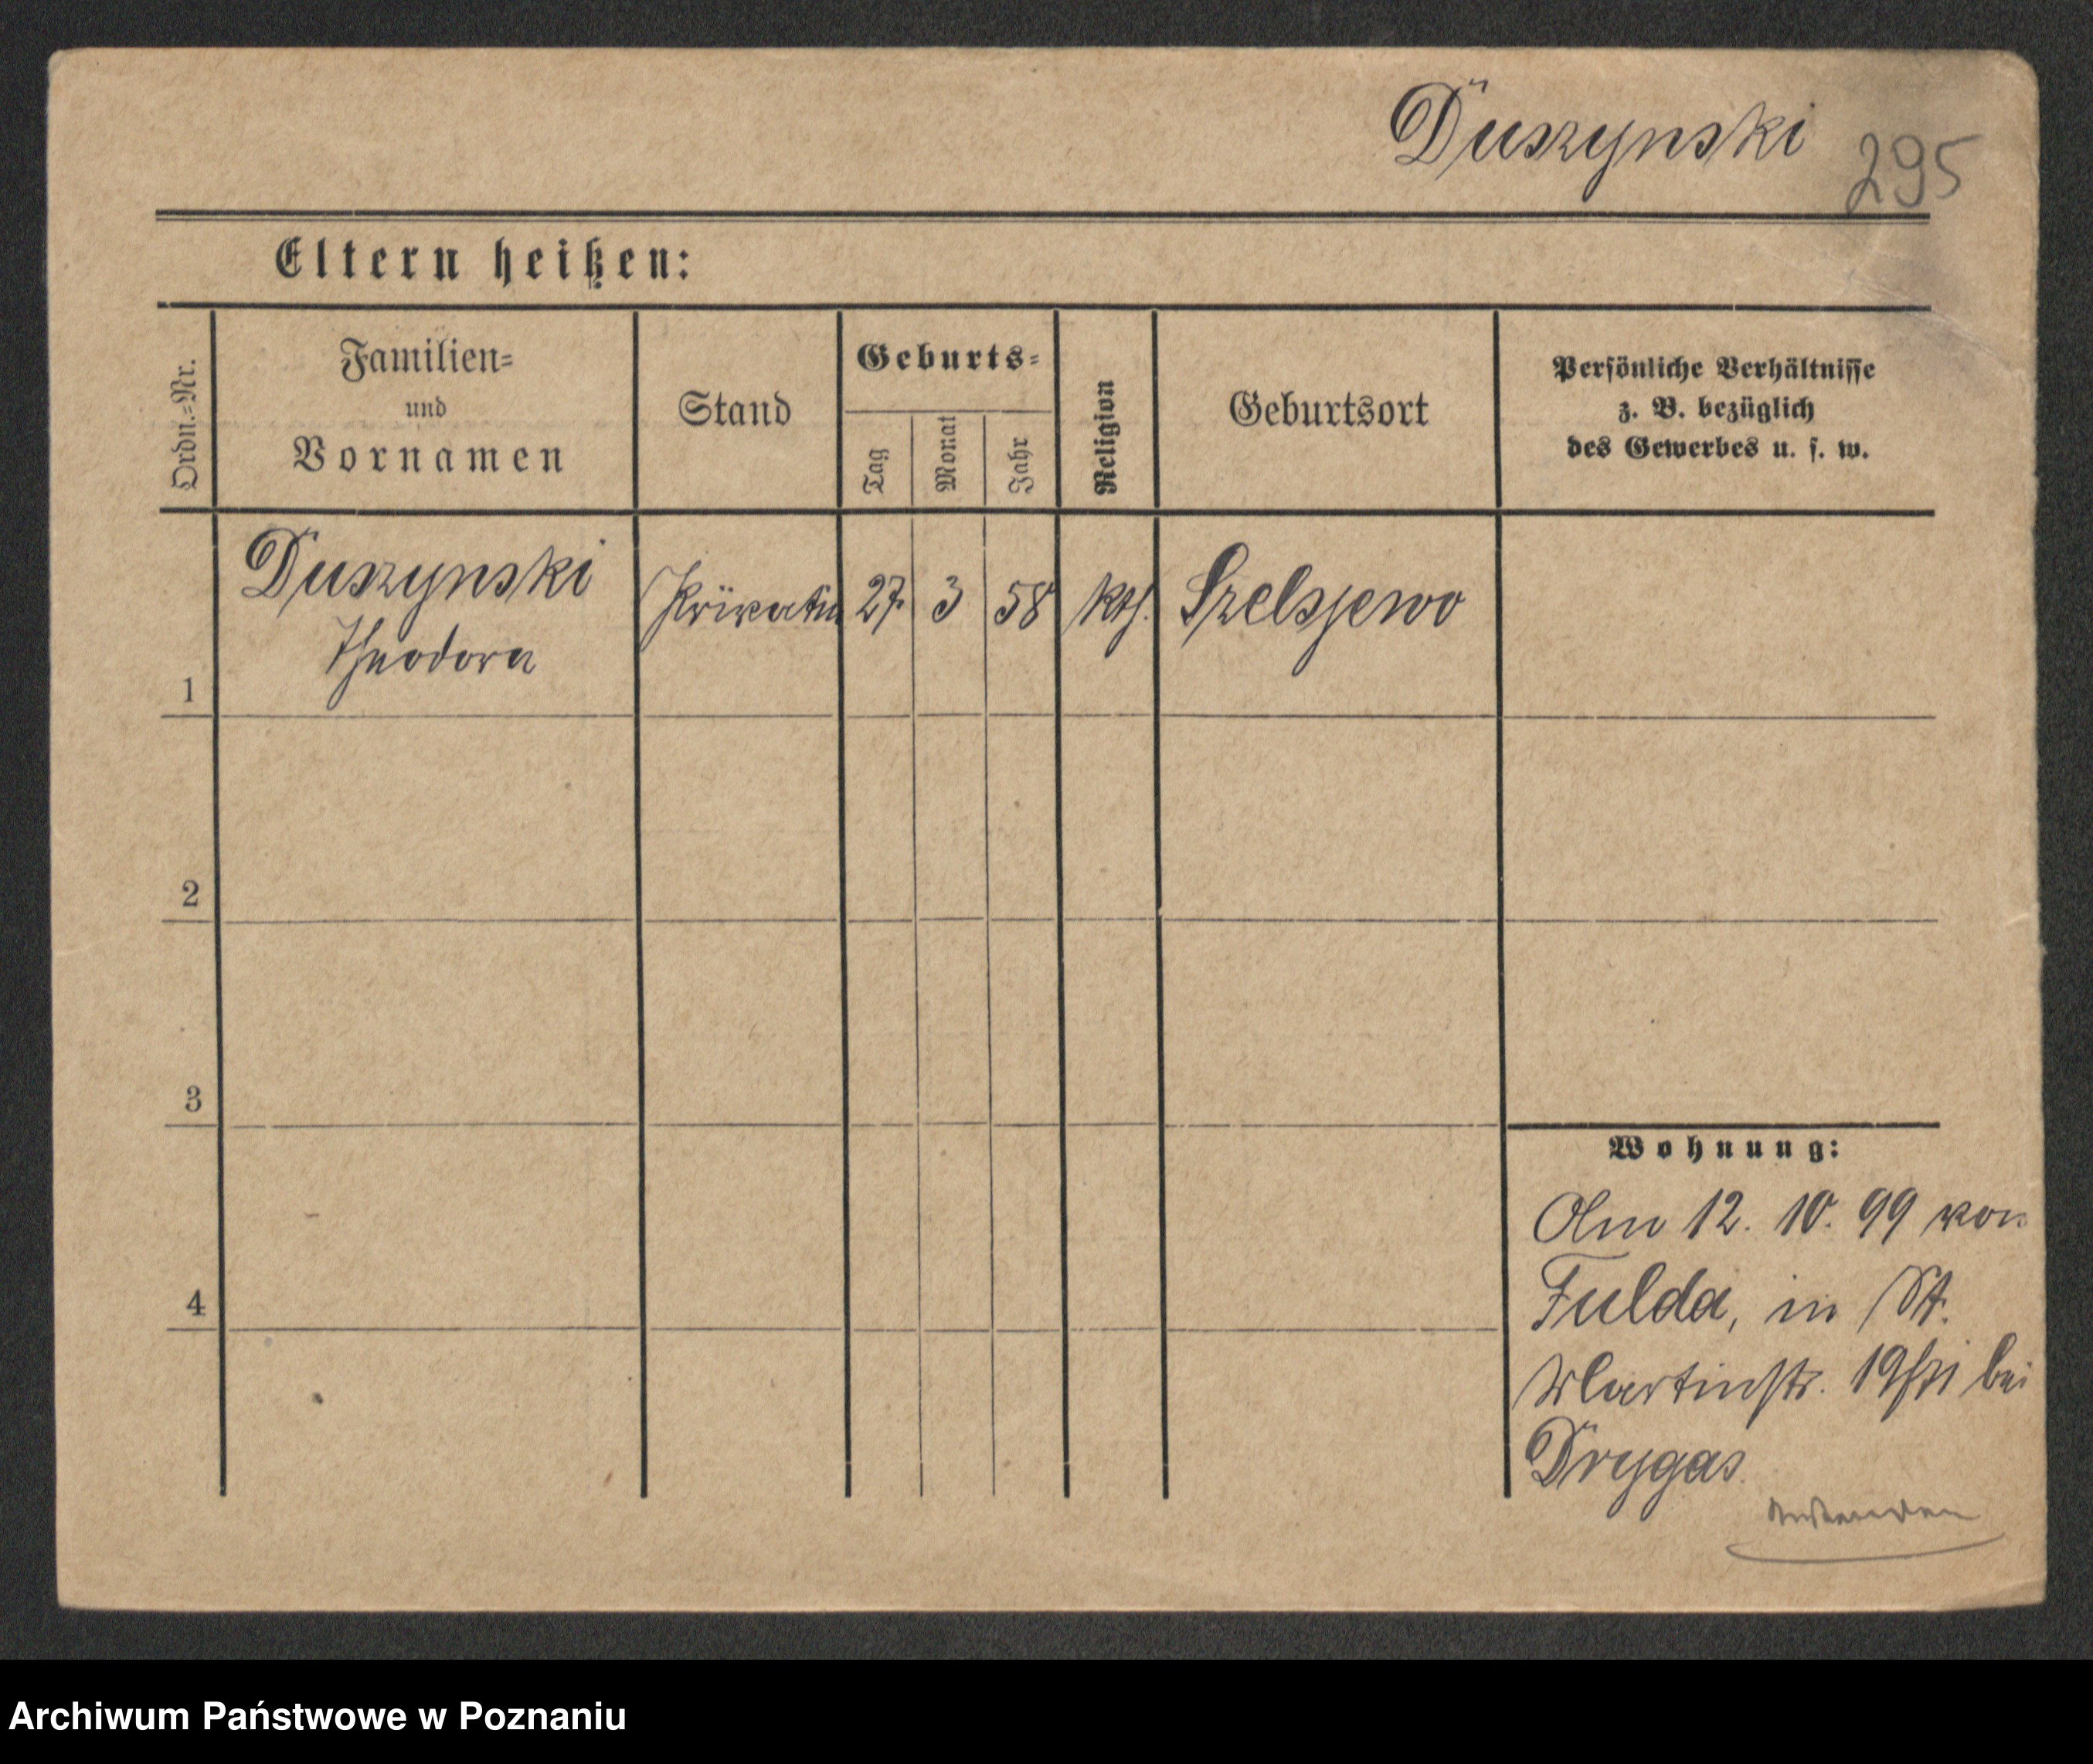 Duszynski
295
Eltern heißen:
Ordn.=Nr.
Familien=
und
Vornamen
Stand
Geburts=
Tag
Monat
Jahr
Religion
Geburtsort
Persönliche Verhältnisse
z. B. bezüglich
des Gewerbes u. s. w.
Duszynski
Theodora
1
27. 3 58 kth.
2
3
4
Wohnung:
Am 12. 10. 99 von
Fulda, in St.
Martinstr. 19 bei
Drygas
Archiwum Państwowe w Poznaniu